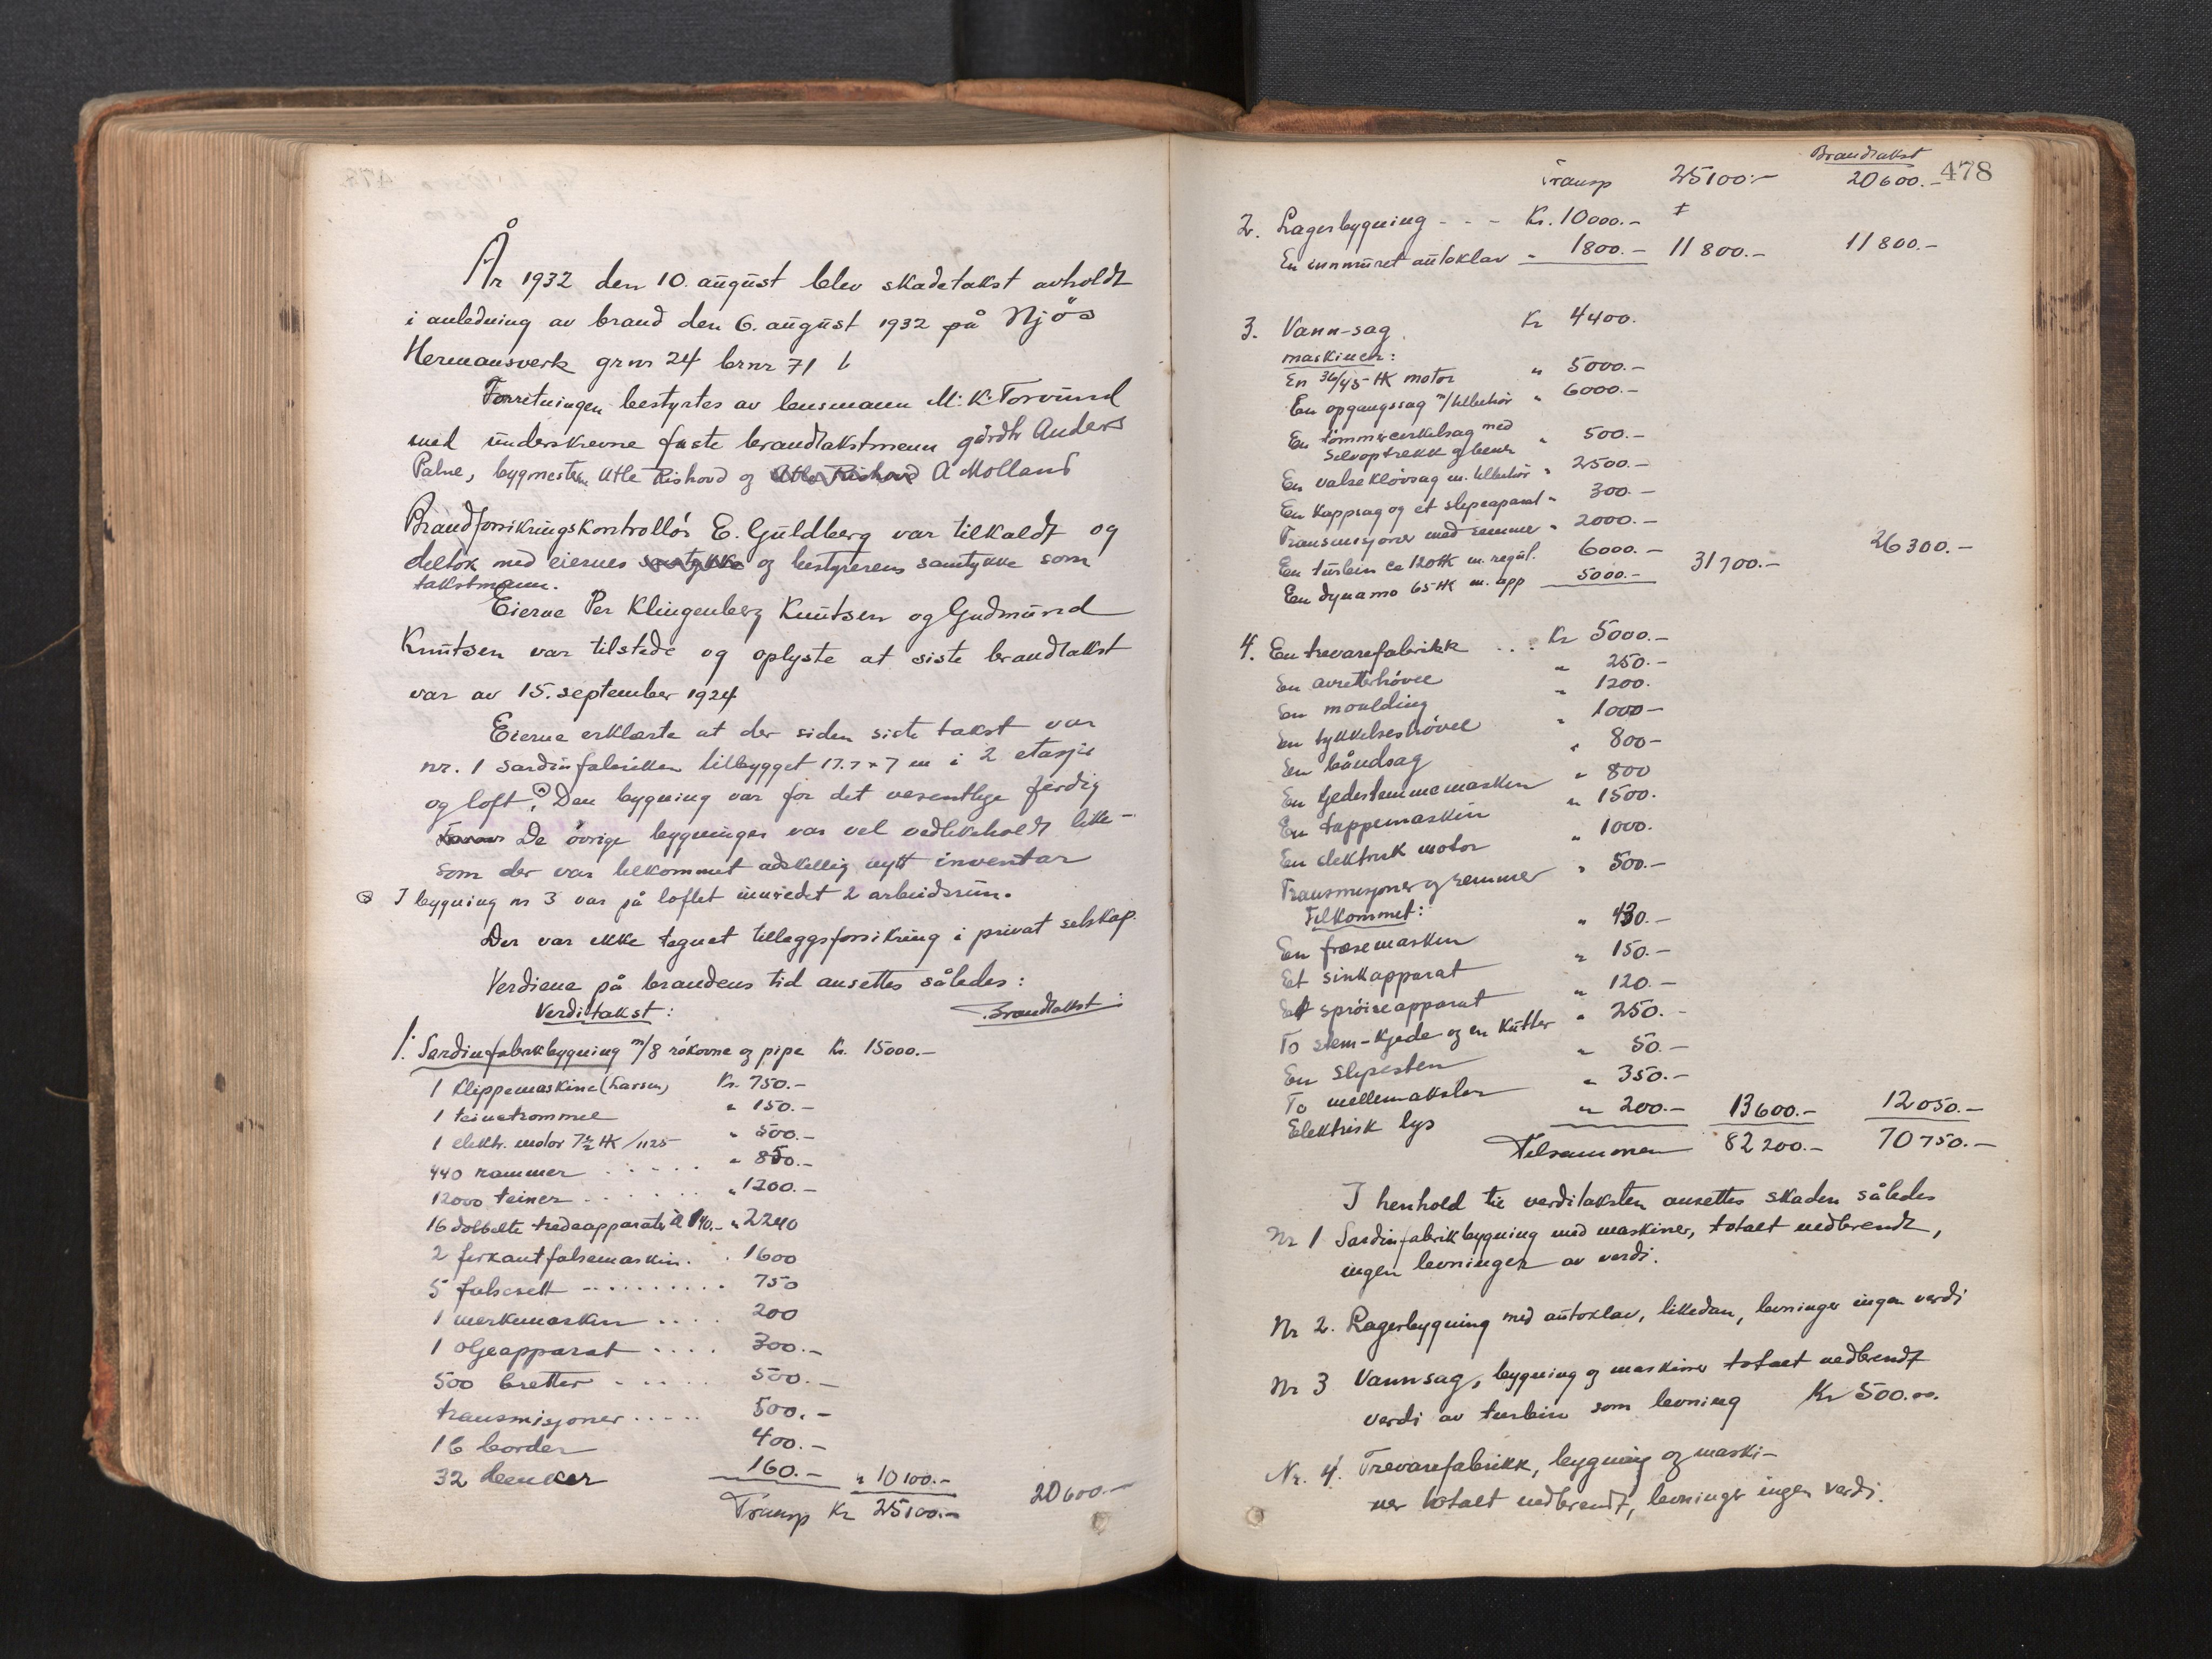 År 1932 den 10. august blev skadetakst avholdt
i anledning av brand den 6. august 1932 på Njøs
Hermansverk grnr 24 brnr 71
Forretningen bestyrtes av lensmann M. K. Torvund
med underskrevne faste brandtakstmenn gårdbr Anders
Palne, bygmester Atle Rishovd og Atle Rishovd A Molland
Brandforsikringskontrollør E. Guldberg var tilkaldt og
deltok med eiernes samtykke og bestyrerens samtykke som
takstmann.
Eierne Per Klingenberg Knutsen og Gudmund
Knutsen var tilstede og oplyste at siste brandtakst
var av 15. september 1924
Eierne erklærte at der siden siste takst var
nr. 1 sardinfabrikken tilbygget 17.7 x 7 m i 2 etasjer
og loft. Den bygning var for det vesentlige ferdig
De øvrige bygninger var vel vedlikeholdt like-
som der var tilkommet adskillig nytt inventar
I bygning nr 3 var på loftet innredet 2 arbeidsrum.
Der var ikke tegnet tilleggsforsikring i privat selskap.
Verdiene på brandens tid ansettes således:
Verditakst: Brandtakst:
1. Sardinfabrikkbygning m/8 rökovne og pipe Kr. 15000.-
1 Klippemaskine (Larsen) Kr. 750.-
1 teinetrommel " 150.-
1 elektr. motor 7½ HK/1125 " 500.-
440 rammer . . . . . " 850.-
12000 teiner . . . . . . " 1200.-
16 dobbelte tredeapparater à 140.- " 2240
2 firkantfalsemaskin. . 1600
5 falsesett . . . . . . . . . 750
1 merkemaskin . . . . 200
1 oljeapparat . . . . 300.-
500 bretter . . . . . 500.-
transmisjoner . . . . . 500.-
16 border 400.-
32 benker 160.- " 10100.-
Transp Kr 25100.- 20600.-
478
Brandtakst
Transp 25100.- 20600.-
2. Lagerbygning - - - Kr. 10000.-
En innmuret autoklav " 1800.- 11800.- 11800.-
3. Vann-sag Kr 4400.
maskiner:
En 36/45 HK motor " 5000.-
En opgangssag m/tilbehör " 6000.-
En tömmercirkelsag med
selvoptrekk og benk " 500.-
En valseklövsag m. tilbehör " 2500.-
En kappsag og et slipeaparat " 300.-
Transmisjoner med remmer " 2000.-
En turbin ca 120 HK m. regul. 6000.-
En dynamo 65 HK m. app 5000.- 31700.- 26300.-
4. En trevarefabrikk . . . Kr 5000.-
En avretterhövel " 250.-
En moulding " 1200.
En tykkelseshövel " 1000-
En båndsag " 800-
En kjedestemmemaskin " 800
En tappemaskin " 1500.
En elektrisk motor " 1000.
Transmisjoner og remmer " 500.-
Tilkommet:
En fræsemaskin " 430.-
Et sinkapparat " 150.-
Et spröiteapparat " 120.-
To stem-kjede og en kutter " 250.-
En slipesten " 50.-
To mellemaksler " 350.-
Elektrisk lys " 200.- 13600.- 12050.-
Tilsammen 82200.- 70750.-
I henhold til verditaksten ansettes skaden således
Nr 1 Sardinfabrikbygning med maskiner, totalt nedbrendt,
ingen levninger av verdi.
Nr 2. Lagerbygning med autoklav, likedan, levninger ingen verdi
Nr 3 Vannsag, bygning og maskiner totalt nedbrendt
verdi av turbin som levning Kr 500.00.
Nr. 4. Trevarefabrikk, bygning og maski-
ner totalt nedbrendt, levninger ingen verdi.